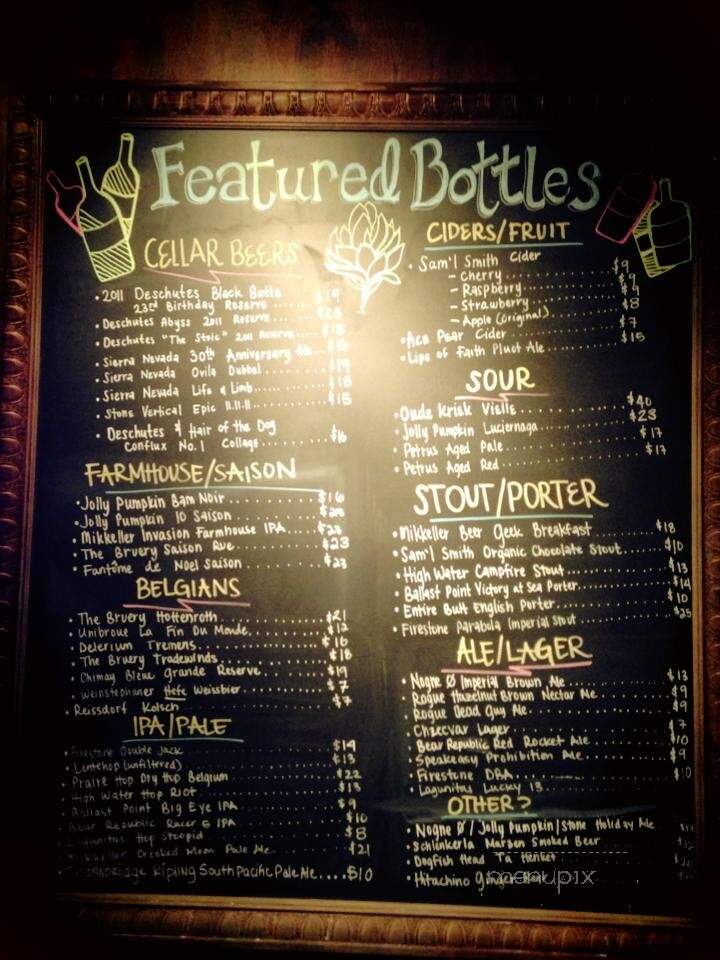 Featured Bottles
CELLAR BEERS
• 2011 Deschutes Black Butte
23rd Birthday Reserve
• Deschutes Abyss 2011 Reserve
• Deschutes "The Stoic" 2011 Reserve
• Sierra Nevada 30th Anniversary Ale
• Sierra Nevada Ovila Dubbel $19
• Sierra Nevada Life & Limb $18
• Stone Vertical Epic 11.11.11 $15
• Deschutes & Hair of the Dog
Conflux No. 1 Collage $16
FARMHOUSE/SAISON
• Jolly Pumpkin Bam Noir $16
• Jolly Pumpkin IO Saison
• Mikkeller Invasion Farmhouse IPA
• The Bruery Saison Rue $23
• Fantôme de Noel Saison $23
BELGIANS
• The Bruery Hottenroth $21
• Unibroue La Fin Du Monde $12
• Delerium Tremens $16
• The Bruery Tradewinds $18
• Chimay Bleue Grande Reserve $19
• Weinstephaner Hefe Weissbier $7
• Reissdorf Kolsch $7
IPA/PALE
• Firestone Double Jack $14
• Lentehop (unfiltered) $13
• Prairie Hop Dry Hop Belgium $22
• High Water Hop Riot $13
• Ballast Point Big Eye IPA $9
• Bear Republic Racer 5 IPA $10
• Lagunitas Hop Stoopid $8
• Mikkeller Crooked Moon Pale Ale $21
Kipling South Pacific Pale Ale $10
CIDERS/FRUIT
• Sam'l Smith Cider
- Cherry $9
- Raspberry $9
- Strawberry
- Apple (original) $8
• Ace Pear Cider $7
• Lips of Faith Pluot Ale $15
SOUR
• Oude Krisk Vielle $40
• Jolly Pumpkin Luciernaga $23
• Petrus Aged Pale $17
• Petrus Aged Red $17
STOUT/PORTER
• Mikkeller Beer Geek Breakfast $18
• Sam'l Smith Organic Chocolate Stout $10
• High Water Campfire Stout $13
• Ballast Point Victory at Sea Porter $14
• Entire Butt English Porter $10
• Firestone Parabola Imperial Stout $25
ALE/LAGER
• Nogne Ø Imperial Brown Ale $13
• Rogue Hazelnut Brown Nectar Ale $9
• Rogue Dead Guy Ale $9
• Chzecvar Lager $7
• Bear Republic Red Rocket Ale $10
• Speakeasy Prohibition Ale $9
• Firestone DBA
• Lagunitas Lucky 13 $10
OTHER?
• Nogne Ø / Jolly Pumpkin/Stone Holiday Ale
• Schlinkerla Marzen Smoked Beer
• Dogfish Head Ta Henket
• Hitachino Ginger
menupix